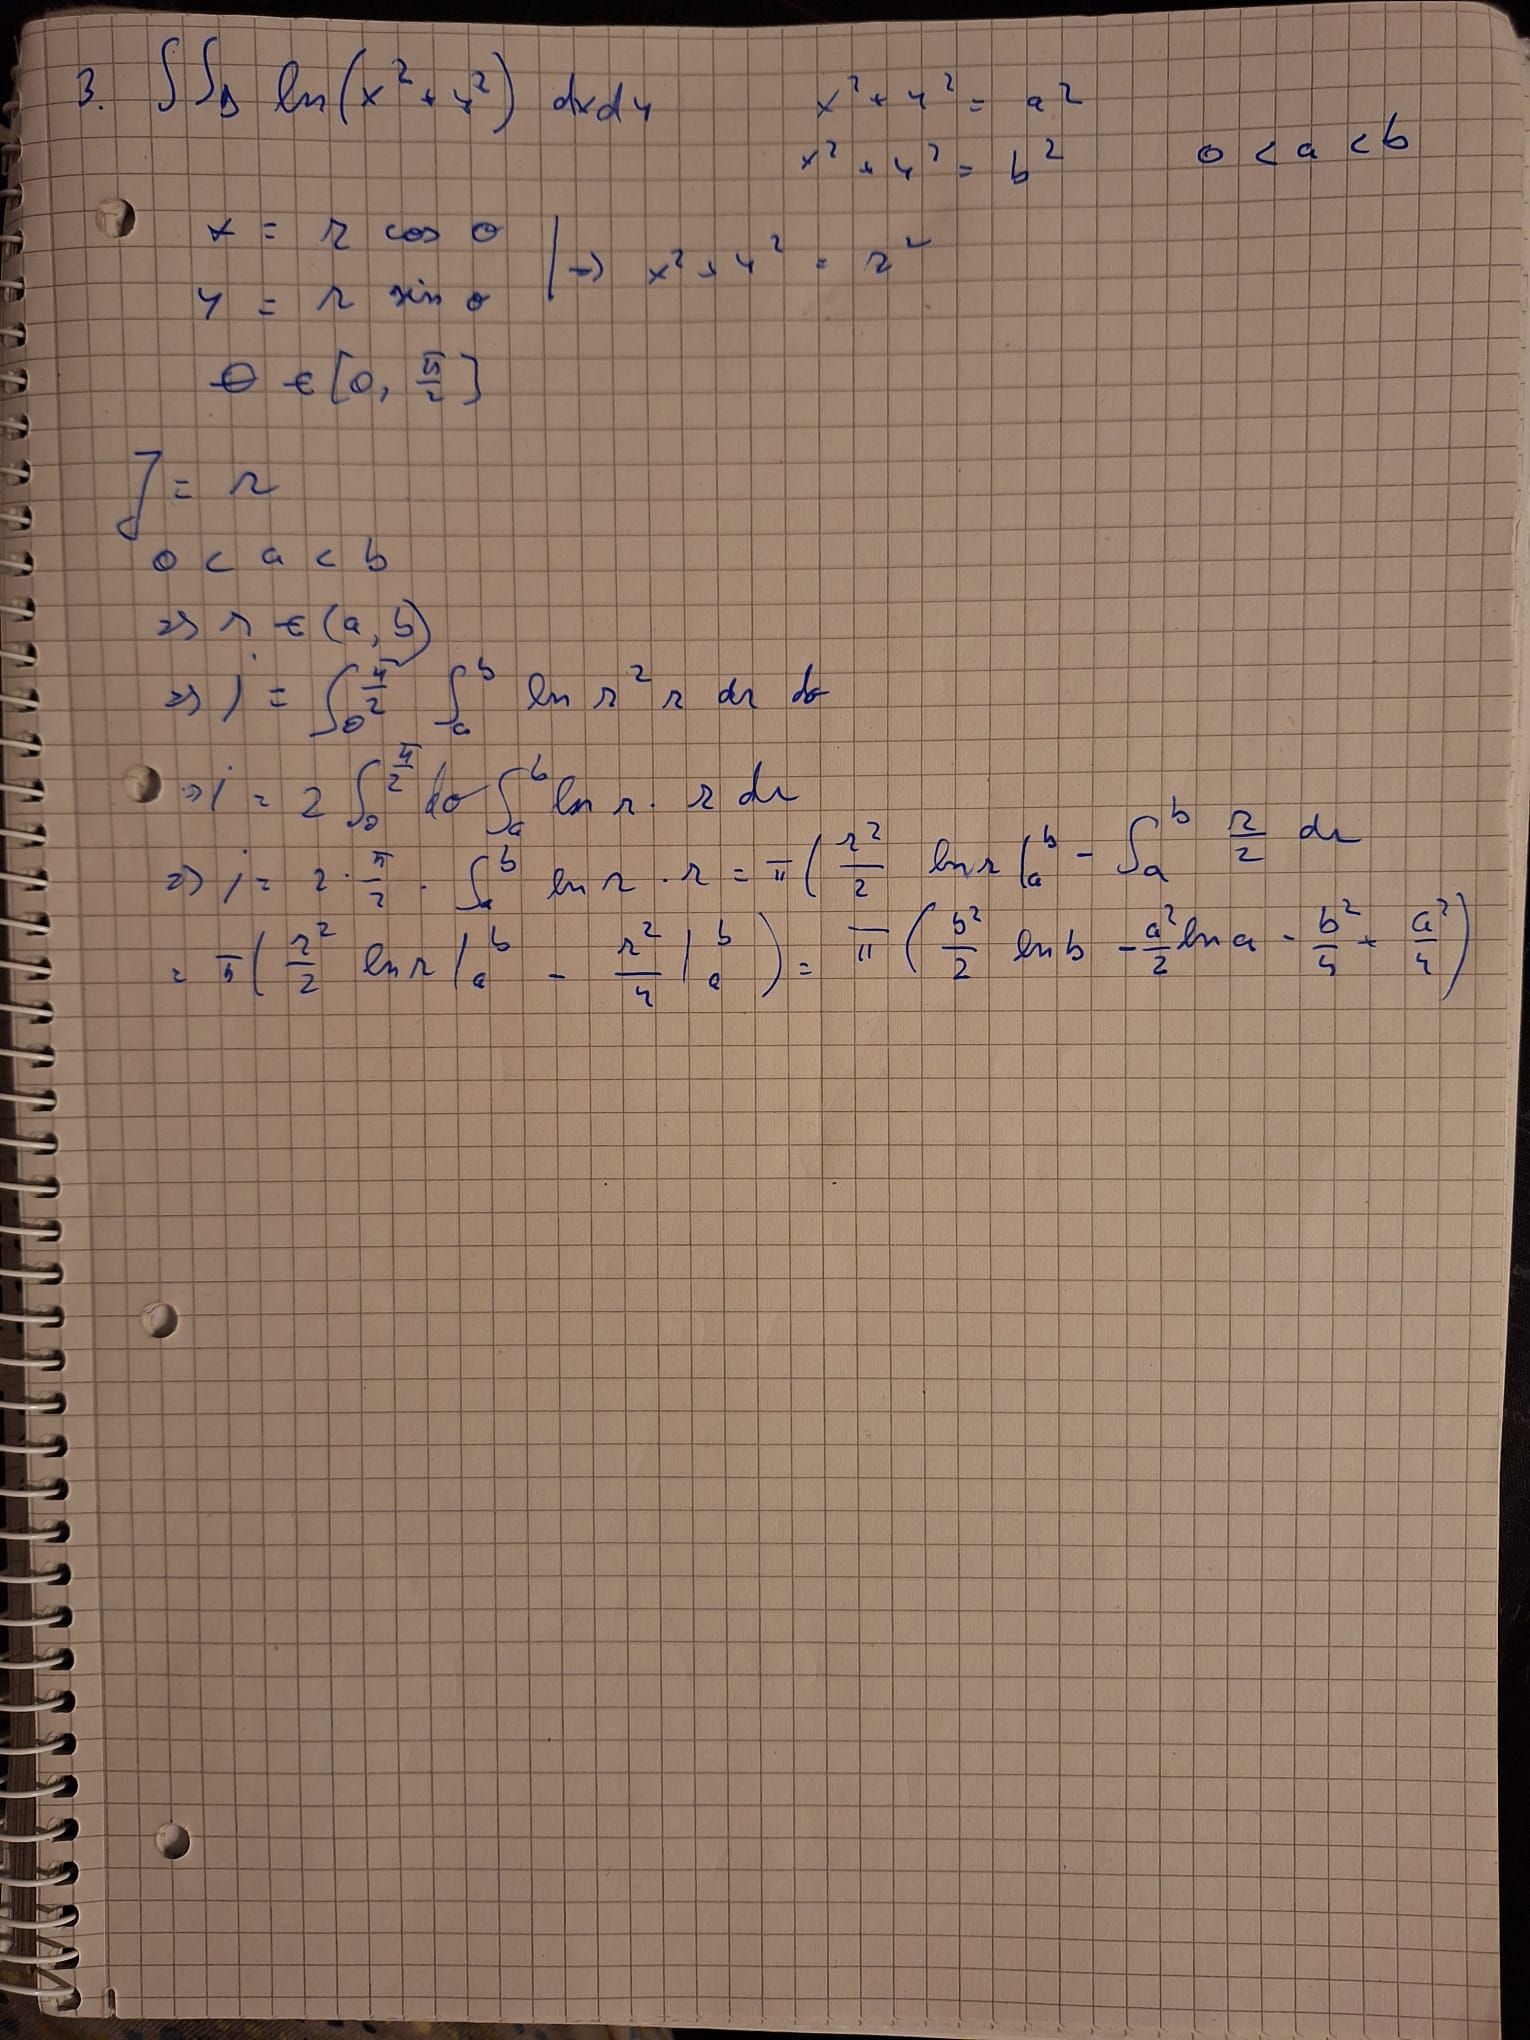 3. ∫∫_D ln(x² + y²) dxdy x² + y² = a²
x² + y² = b² 0 < a < b
x = r cos θ
y = r sin θ | => x² + y² = r²
θ ∈ [0, π/2]
J = r
0 < a < b
=> r ∈ (a, b)
=> i = ∫_0^{π/2} ∫_a^b ln r² r dr dθ
=> i = 2 ∫_0^{π/2} dθ ∫_a^b ln r · r dr
=> i = 2 · π/2 · ∫_a^b ln r · r = π ( r²/2 ln r |_a^b - ∫_a^b r/2 dr
= π ( r²/2 ln r |_a^b - r²/4 |_a^b ) = π ( b²/2 ln b - a²/2 ln a - b²/4 + a²/4 )